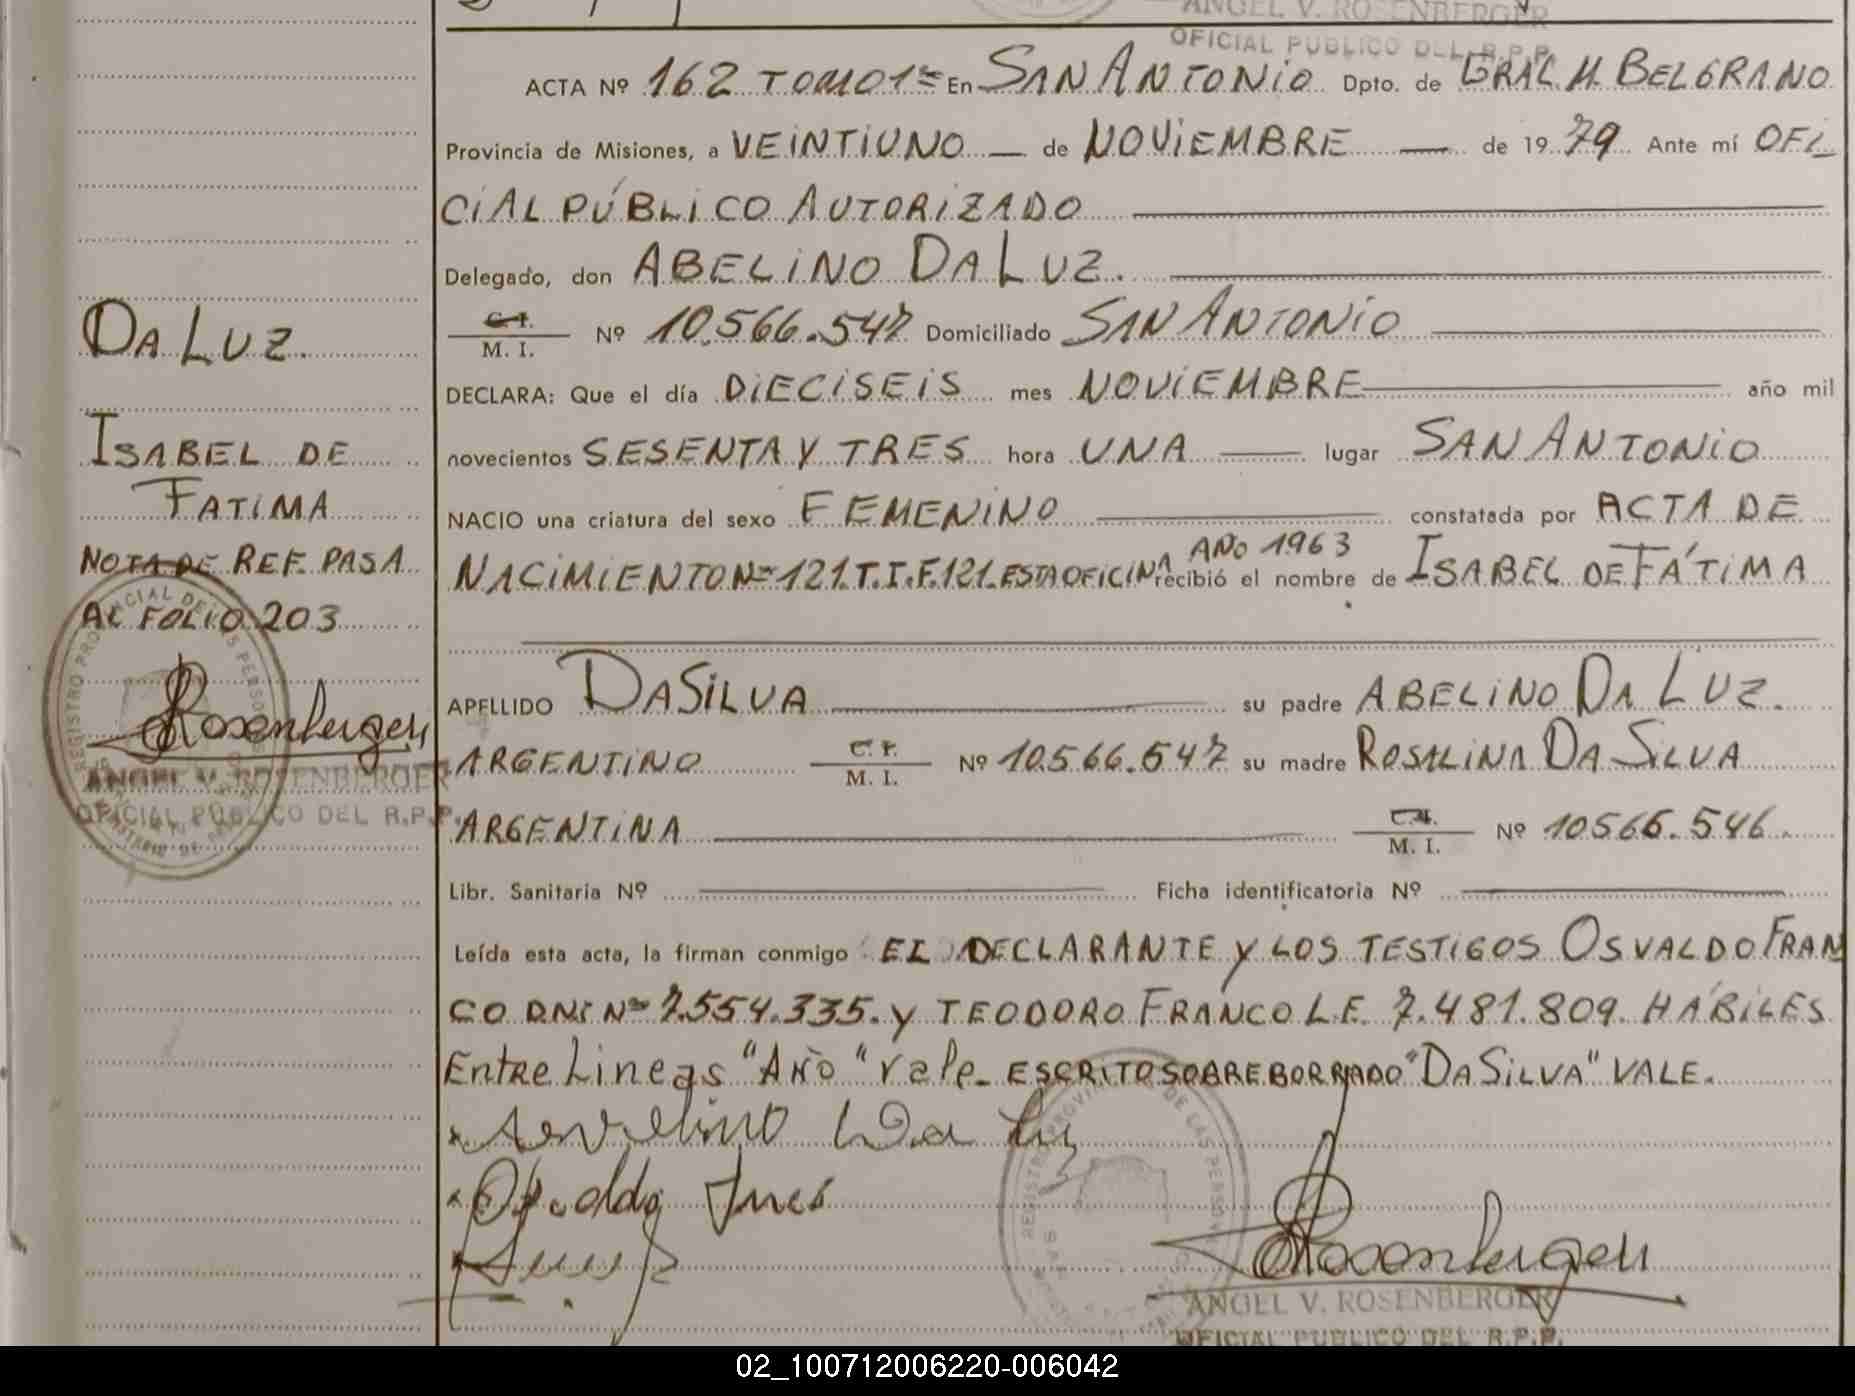 ANGEL V. ROSENBERGER
OFICIAL PUBLICO DEL R.P.P.
ACTA Nº 162 TOMO 1º En SAN ANTONIO Dpto. de GRAL M. BELGRANO
Provincia de Misiones, a VEINTIUNO — de NOVIEMBRE — de 1979 Ante mí OFI
CIAL PÚBLICO AUTORIZADO
Delegado, don ABELINO DA LUZ.
C. I.
M. I. Nº 10.566.547 Domiciliado SAN ANTONIO
DECLARA: Que el día DIECISEIS mes NOVIEMBRE año mil
novecientos SESENTA Y TRES hora UNA — lugar SAN ANTONIO
NACIO una criatura del sexo FEMENINO constatada por ACTA DE
AÑO 1963
NACIMIENTO Nº 121.T.I.F.121.ESTA OFICINA recibió el nombre de ISABEL DE FÁTIMA
APELLIDO DA SILVA su padre ABELINO DA LUZ.
ARGENTINO C. I. M. I. Nº 10.566.547 su madre ROSALINA DA SILVA
ARGENTINA C. I. M. I. Nº 10566.546
Libr. Sanitaria Nº Ficha identificatoria Nº
Leída esta acta, la firman conmigo EL DECLARANTE Y LOS TESTIGOS OSVALDO FRAN
CO DNI Nº 7.554.335. Y TEODORO FRANCO L.E. 7.481.809. HÁBILES
Entre Lineas "AÑO" Vale. ESCRITO SOBRE BORRADO "DA SILVA" VALE.
Rosenberger
ANGEL V. ROSENBERGER
OFICIAL PUBLICO DEL R.P.P.
DA LUZ.
ISABEL DE
FATIMA
NOTA DE REF. PASA
AL FOLIO 203
Rosenberger
ANGEL V. ROSENBERGER
OFICIAL PUBLICO DEL R.P.P.
02_100712006220-006042